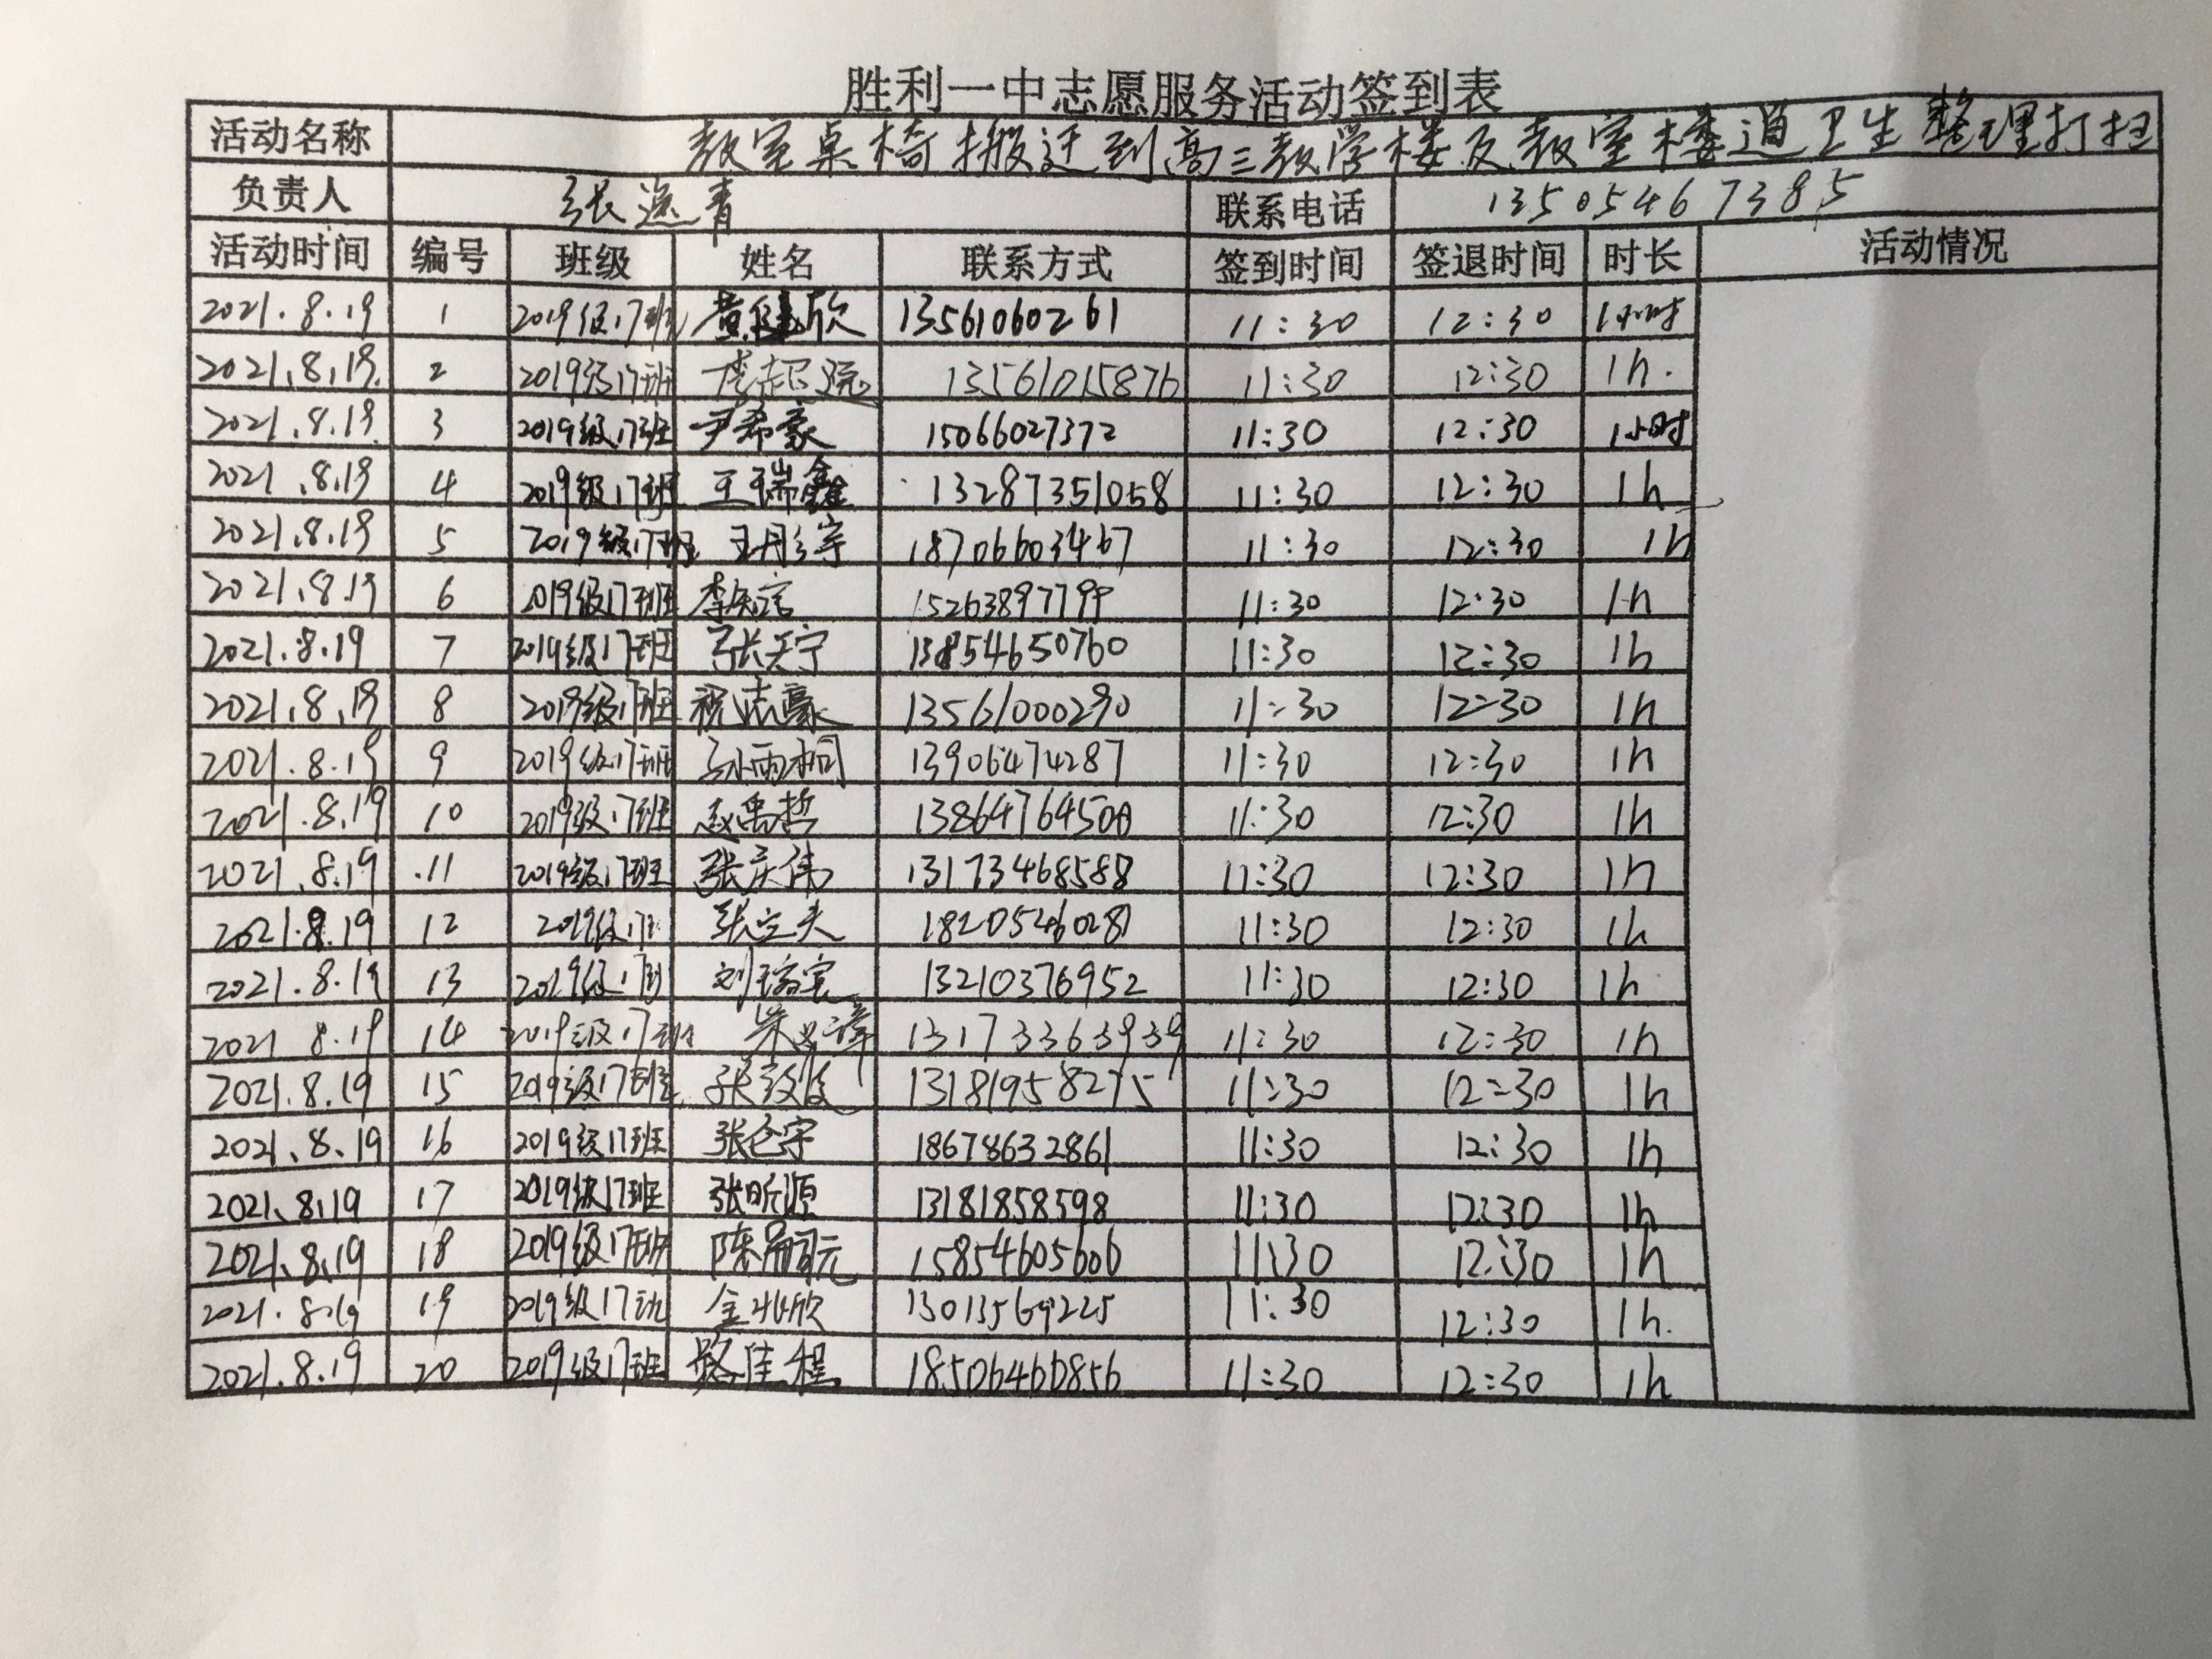 胜利一中志愿服务活动签到表
活动名称 教室桌椅搬迁到高三教学楼及教室楼道卫生整理打扫
负责人 张逸青 联系电话 13505467385
活动时间 编号 班级 姓名 联系方式 签到时间 签退时间 时长 活动情况
2021.8.19 1 2019级17班 黄健欣 13561060261 11:30 12:30 1小时
2021.8.19. 2 2019级17班 李起 13561015876 11:30 12:30 1h.
2021.8.19. 3 2019级17班 尹希豪 15066027372 11:30 12:30 1小时
2021.8.19 4 2019级17班 王瑞鑫 13287351058 11:30 12:30 1h
2021.8.19 5 2019级17班 王丹宇 18706603467 11:30 12:30 1h
2021.8.19 6 2019级17班 李矢言 15263897799 11:30 12:30 1h
2021.8.19 7 2019级17班 张天宁 13854650760 11:30 12:30 1h
2021.8.19 8 2019级17班 祝志豪 13561000290 11:30 12:30 1h
2021.8.19 9 2019级17班 孙雨桐 13906474287 11:30 12:30 1h
2021.8.19 10 2019级17班 赵禹哲 13864764500 11:30 12:30 1h
2021.8.19 11 2019级17班 张庆伟 13173468588 11:30 12:30 1h
2021.8.19 12 2019级17班 张 18205460281 11:30 12:30 1h
2021.8.19 13 2019级17班 刘 13210376952 11:30 12:30 1h
2021 8.19 14 2019级17班 朱 13173363939 11:30 12:30 1h
2021.8.19 15 2019级17班 张 13181958275 11:30 12:30 1h
2021.8.19 16 2019级17班 张仓宇 18678632861 11:30 12:30 1h
2021.8.19 17 2019级17班 张昕源 13181858598 11:30 12:30 1h
2021.8.19 18 2019级17班 陈嗣元 15854605606 11:30 12:30 1h
2021.8.19 19 2019级17班 金兆欣 13013569225 11:30 12:30 1h.
2021.8.19 20 2019级17班 路佳程 18506460856 11:30 12:30 1h